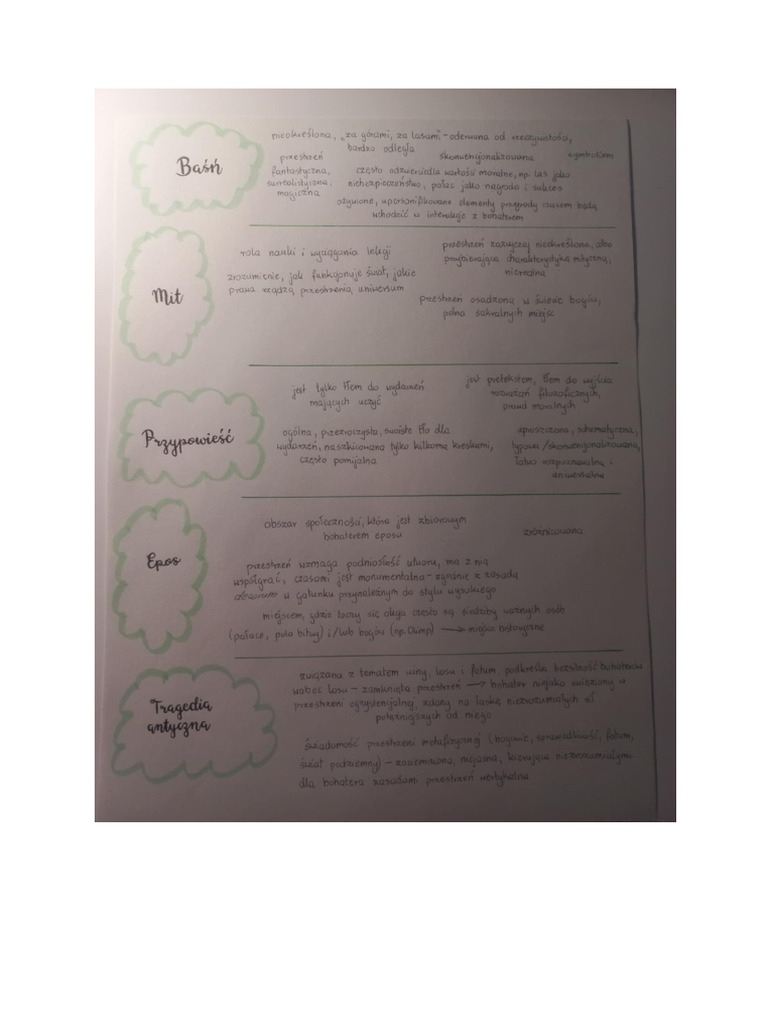 Baśń
nieokreślona, „za górami, za lasami" - oderwana od rzeczywistości,
bardzo odległa
przestrzeń
fantastyczna,
surrealistyczna,
magiczna
skonwencjonalizowana
symbolizm
często odzwierciedla wartości moralne, np. las jako
niebezpieczeństwo, pałac jako nagroda i sukces
ożywione, upersonifikowane elementy przyrody czasem będą
wchodzić w interakcje z bohaterem
Mit
rola nauki i wyciągania lekcji
zrozumienie, jak funkcjonuje świat, jakie
prawa rządzą przestrzenią, uniwersum
przestrzeń zazwyczaj nieokreślona, albo
przybierająca charakterystykę mityczną,
nierealna
przestrzeń osadzona w świecie bogów,
pełna sakralnych miejsc
Przypowieść
jest tylko tłem do wydarzeń
mających uczyć
jest pretekstem, tłem do wyjścia
rozważań filozoficznych,
prawd moralnych
ogólna, przezroczysta, swoiste tło dla
wydarzeń, naszkicowana tylko kilkoma kreskami,
często pomijalna
uproszczona, schematyczna,
typowa/skonwencjonalizowana,
łatwo rozpoznawalna i
uniwersalna
Epos
obszar społeczności, która jest zbiorowym
bohaterem eposu
zróżnicowana
przestrzeń wzmaga podniosłość utworu, ma z nią
współgrać, czasami jest monumentalna - zgodnie z zasadą
decorum w gatunku przynależnym do stylu wysokiego
miejscem, gdzie toczy się akcja często są siedziby ważnych osób
(pałace, pola bitwy) i/lub bogów (np. Olimp) → miejsca historyczne
Tragedia
antyczna
związana z tematem winy, losu i fatum, podkreśla bezsilność bohaterów
wobec losu - zamknięta przestrzeń → bohater niejako uwięziony w
przestrzeni egzystencjalnej, zdany na łaskę niezrozumiałych sił
potężniejszych od niego
świadomość przestrzeni metafizycznej (bogowie, sprawiedliwość, fatum,
świat podziemny) - niejasna, kierująca niezrozumiałymi
dla bohatera zasadami przestrzeń wertykalna